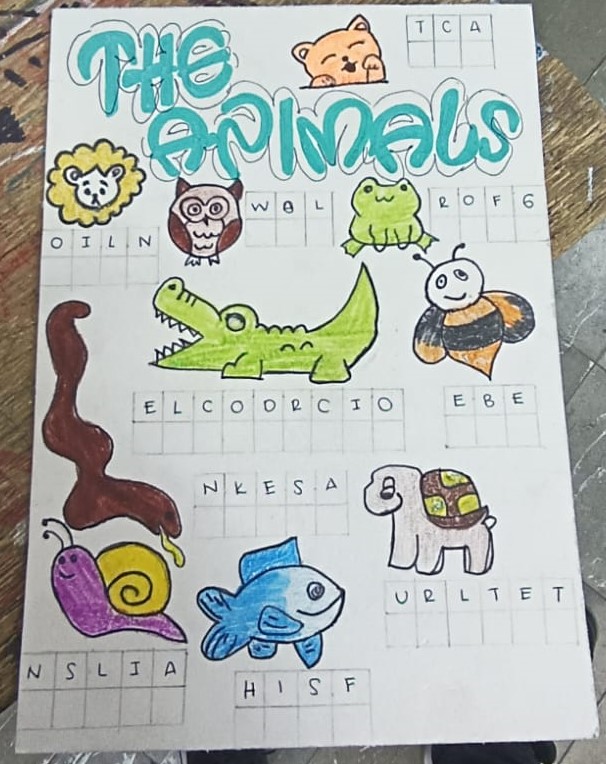 THE
ANIMALS
T C A
O I L N
W O L
R O F G
E L C O D R C I O
E B E
N K E S A
U R L T E T
N S L I A
H I S F